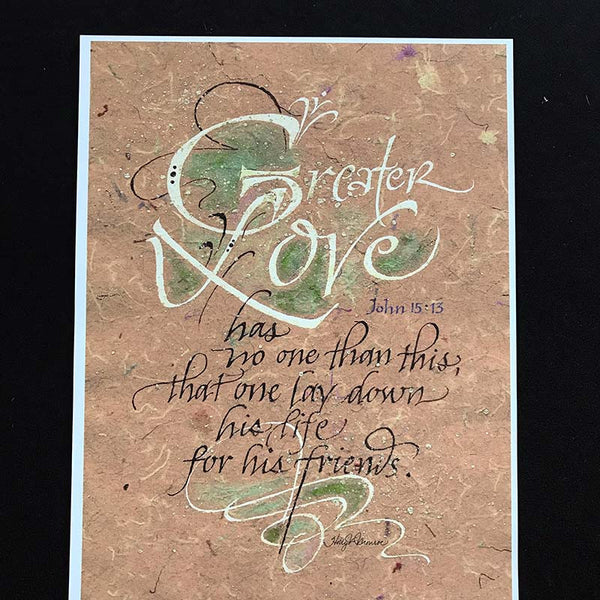 Greater
Love
John 15:13
has
no one than this,
that one lay down
his life
for his friends.